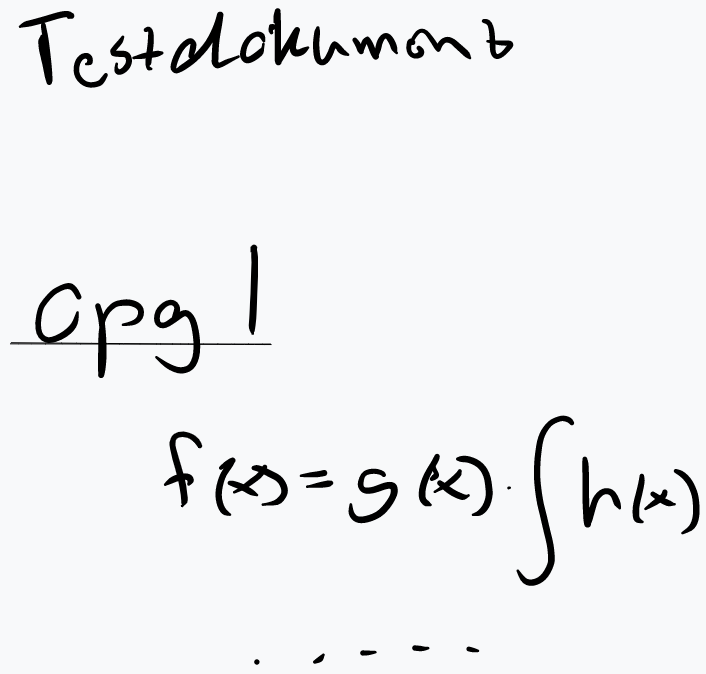 Testdokument
Opg 1
f(x) = g(x) · ∫ h(x)
. . - - -